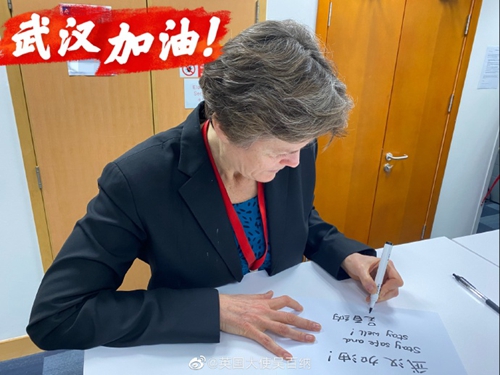 武汉加油!
武汉加油!
Stay safe and
stay well!
吴百纳
@英国大使吴百纳